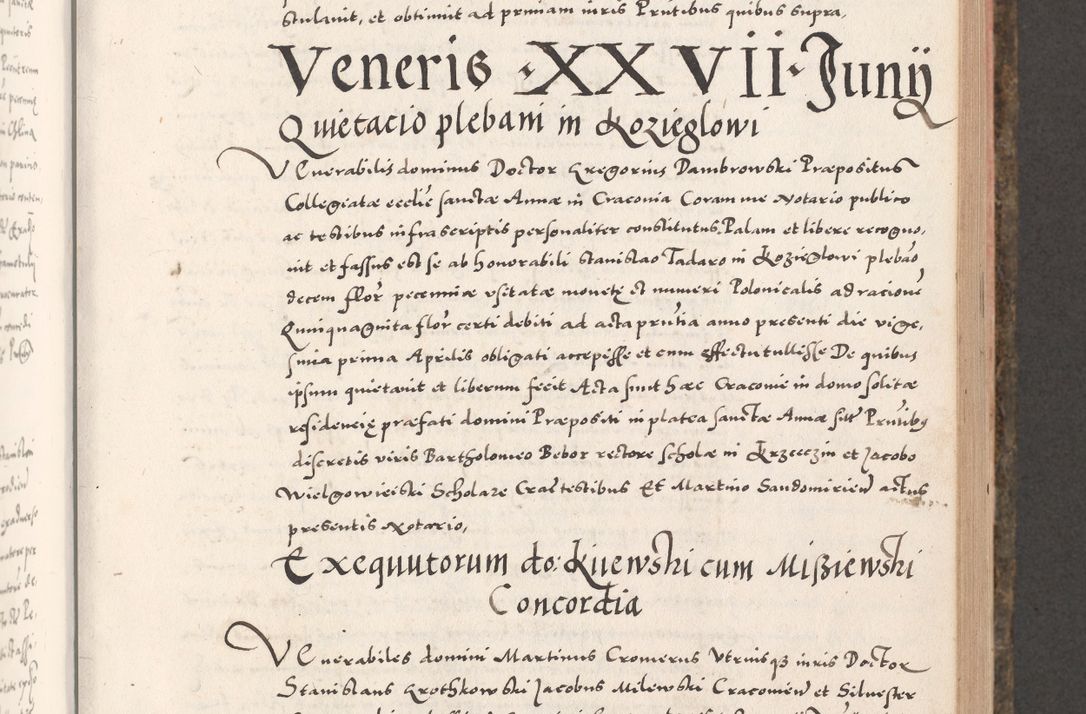 stulavit, et obtinuit ad primam iuris Prntibus quibus supra,
Veneris · XXVII · Junÿ
Quietacio plebani in Kozieglowi
VEnerabilis dominus Doctor Gregorius Dambrowski Præpositus
Collegiatæ ecclie sanctæ Annæ in Cracovia Coram me Notario publico
ac testibus infrascriptis personaliter constitutus. Palam et libere recogno,
uit et fassus est se ab honorabili Stanislao Tadaro in Kozieglowi plebano
decem flor pecuniæ vsitatæ monetę et numeri Polonicalis ad racione
Quinquaginta flor certi debiti ad acta prntia anno presenti die vige,
sima prima Aprilis obligati accepisse et cum effectu tullisse De quibus
ipsum quietavit et liberum fecit Acta sunt hæc Cracovie in domo solitæ
residencię præfati domini Præpositi in platea sanctæ Annæ sitt Prntibus
discretis viris Bartholomeo Bebor rectore scholæ in Krzeczin et Jacobo
Wielgowieiski Scholare Crac testibus Et Martino Sandomirien actus
presentis Notario,
Exequutorum do: Kiiewski cum Mißiewski
Concordia
VEnerabiles domini Martinus Cromerus Vtriusqz iuris Doctor
Stanislaus Grothkowski Jacobus Milewski Cracovien et Silvester